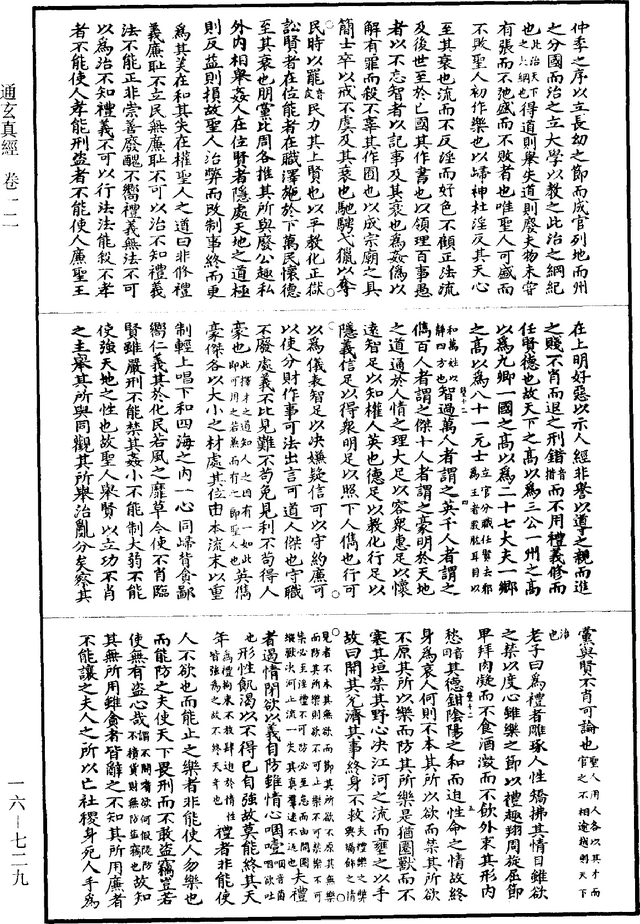 仲季之序以立長幼之節而成官列地而州
之分國而治之立大學以教之此治之綱紀
也此治天下之大綱也得道則舉失道則廢夫物未嘗
有張而不弛盛而不敗者也唯聖人可盛而
不敗聖人初作樂也以歸神杜淫反其天心
至其衰也流而不反淫而好色不顧正法流
及後世至於亡國其作書也以領理百事愚
者以不忘智者以記事及其衰也為姦偽以
解有罪而殺不辜其作囿也以成宗廟之具
簡士卒以戒不虞及其衰也馳騁弋獵以奪
民時以罷音皮民力其上賢也以平教化正獄
訟賢者在位能者在職澤施於下萬民懷德
至其衰也朋黨比周各推其所與廢公趨私
外內相舉姦人在位賢者隱處天地之道極
則反益則損故聖人治弊而改制事終而更
為其美在和其失在權聖人之道曰非修禮
義廉恥不立民無廉恥不可以治不知禮義
法不能正非崇善廢醜不嚮禮義無法不可
以為治不知禮義不可以行法法能殺不孝
者不能使人孝能刑盜者不能使人廉聖王
在上明好惡以示人經非譽以導之親而進
之賤不肖而退之刑錯音措而不用禮義修而
任賢德也故天下之高以為三公一州之高
以為九卿一國之高以為二十七大夫一鄉
之高以為八十一元士立官分職任賢去邪為王者股肱耳目以
和萬社以解四方也智過萬人者謂之英千人者謂之
儁百人者謂之傑十人者謂之豪明於天地
之道通於人情之理大足以容眾惠足以懷
遠智足以知權人英也德足以教化行足以
隱義信足以得眾明足以照下人儁也行可
以為儀表智足以決嫌疑信可以守約廉可
以使分財作事可法出言可道人傑也守職
不廢處義不比見難不苟免見利不苟得人
豪也此擇才之道知人之因有一如此即可用之若兼而有之即聖人也英儁
豪傑各以大小之材處其位由本流末以重
制輕上唱下和四海之內一心同歸背貪鄙
嚮仁義其於化民若風之靡草今使不肖臨
賢雖嚴刑不能禁其姦小不能制大弱不能
使強天地之性也故聖人舉賢以立功不肖
之主舉其所與同觀其所舉治亂分矣察其
黨與賢不肖可論也聖人用人各以其才而官之不相逾越則天下
治也
老子曰為禮者雕琢人性矯拂其情目雖欲
之禁以度心雖樂之節以禮趨翔周旋屈節
卑拜肉凝而不食酒澂而不飲外束其形內
愁其德鉗陰陽之和而迫性命之情故終
身為哀人何則不本其所以欲而禁其所欲
不原其所以樂而防其所樂是猶圈獸而不
塞其垣禁其野心決江河之流而壅之以手
故曰開其兌濟其事終身不救夫禮樂之興矯飾之情
見者不本其無欲而節其所欲不原其無樂而防其所樂則欲不可止樂不可禁樂不可
禁必至淫禮不可防必至怠而由開圈縱獸決河止流一失其真群遠不返也夫禮
者遏情閉欲以義自防雖情心咽噎
形性飢渴以不得已自強故莫能終其天
年為禮拘束不教肆逝於情性皆強為之故不終天年也禮者非能使
人不欲也而能止之樂者非能使人勿樂也
而能防之夫使天下畏刑而不敢盜竊豈若
使無有盜心哉謂不開嗜欲何假隄防不積貨財無防盜竊也故知
其無所用雖貪者皆辭之不知其所用廉者
不能讓之夫人之所以亡社稷身死人手為
通玄真經 卷一二
一六—七二九